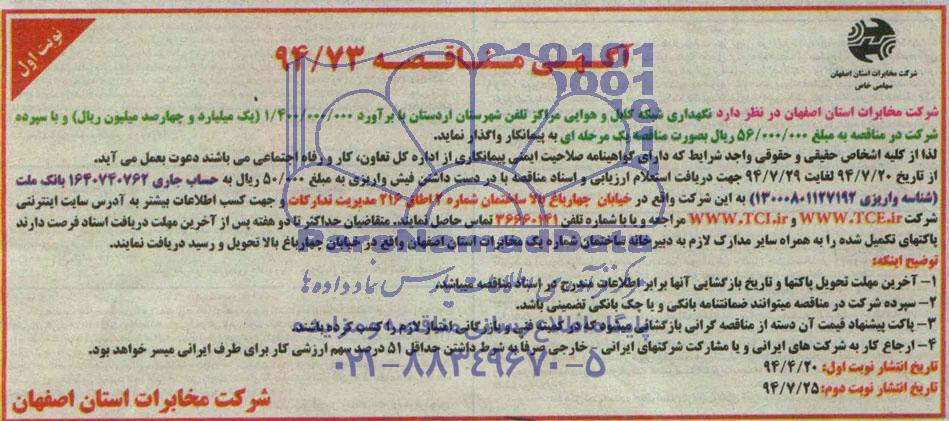 نوبت اول
آگهی مناقصه ۹۴/۷۳
شرکت مخابرات استان اصفهان
سهامی خاص
شرکت مخابرات استان اصفهان در نظر دارد نگهداری شبکه کابل و هوایی مراکز تلفن شهرستان اردستان با برآورد ۱/۴۰۰/۰۰۰/۰۰۰ (یک میلیارد و چهارصد میلیون ریال) و با سپرده
شرکت در مناقصه به مبلغ ۵۶/۰۰۰/۰۰۰ ریال بصورت مناقصه یک مرحله ای به پیمانکار واگذار نماید.
لذا از کلیه اشخاص حقیقی و حقوقی واجد شرایط که دارای گواهینامه صلاحیت ایمنی پیمانکاری از اداره کل تعاون، کار و رفاه اجتماعی می باشند دعوت بعمل می آید.
از تاریخ ۹۴/۷/۲۰ لغایت ۹۴/۷/۲۹ جهت دریافت استعلام ارزیابی و اسناد مناقصه با در دست داشتن فیش واریزی به مبلغ ۵۰/۰۰۰ ریال به حساب جاری ۱۶۴۰۷۴۰۷۶۲ بانک ملت
(شناسه واریزی ۱۳۰۰۰۸۰۱۱۲۷۱۹۲) به این شرکت واقع در خیابان چهارباغ بالا ساختمان شماره ۲ اطاق ۲۱۶ مدیریت تدارکات و جهت کسب اطلاعات بیشتر به آدرس سایت اینترنتی
شرکت WWW.TCE.ir و WWW.TCI.ir مراجعه و یا با شماره تلفن ۳۶۶۶۰۱۴۱ تماس حاصل نمایند. متقاضیان حداکثر تا دو هفته پس از آخرین مهلت دریافت اسناد فرصت دارند
پاکتهای تکمیل شده را به همراه سایر مدارک لازم به دبیرخانه ساختمان شماره یک مخابرات استان اصفهان واقع در خیابان چهارباغ بالا تحویل و رسید دریافت نمایند.
توضیح اینکه:
۱- آخرین مهلت تحویل پاکتها و تاریخ بازگشایی آنها برابر اطلاعات مندرج در اسناد مناقصه میباشد.
۲- سپرده شرکت در مناقصه میتوانند ضمانتنامه بانکی و یا چک بانکی تضمینی باشد.
۳- پاکت پیشنهاد قیمت آن دسته از مناقصه گرانی بازگشائی میشود که در کمیته فنی و بازرگانی امتیاز لازم را کسب کرده باشند.
۴- ارجاع کار به شرکت های ایرانی و یا مشارکت شرکتهای ایرانی - خارجی صرفا به شرط داشتن حداقل ۵۱ درصد سهم ارزشی کار برای طرف ایرانی میسر خواهد بود.
تاریخ انتشار نوبت اول: ۹۴/۴/۲۰
تاریخ انتشار نوبت دوم: ۹۴/۷/۲۵
شرکت مخابرات استان اصفهان
ParsNamadData
مرکز فرآوری اطلاعات پارس نماد داده ها
پایگاه اطلاع رسانی مناقصه و مزایده
۰۲۱-۸۸۳۴۹۶۷۰-۵